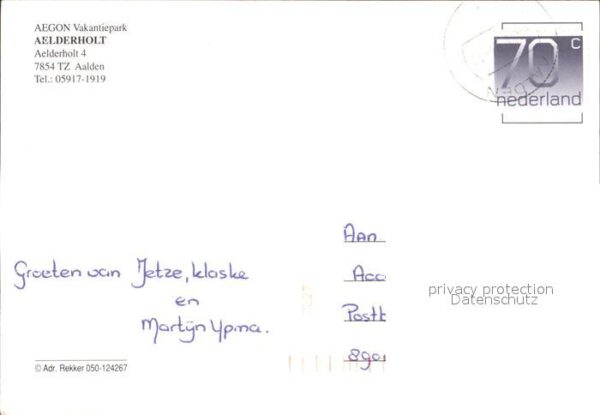 AEGON Vakantiepark
AELDERHOLT
Aelderholt 4
7854 TZ Aalden
Tel.: 05917-1919
70 c
nederland
Aan
Groeten van Jetze, klaske
en
Martijn Ypma.
Acc
Postb
890
privacy protection
Datenschutz
© Adr. Rekker 050-124267